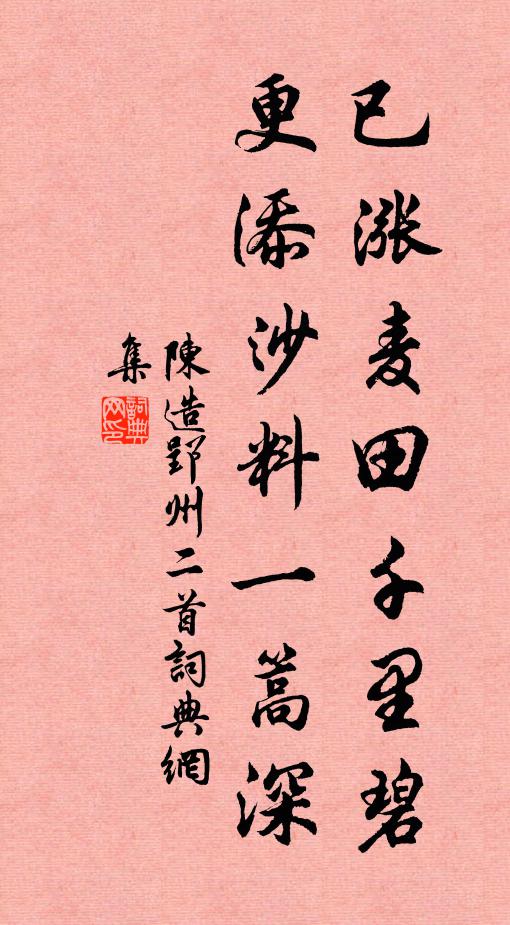 已漲麦田千里碧
更添沙料一篙深
陳造郢州二首詞典網
集
詞典
网印